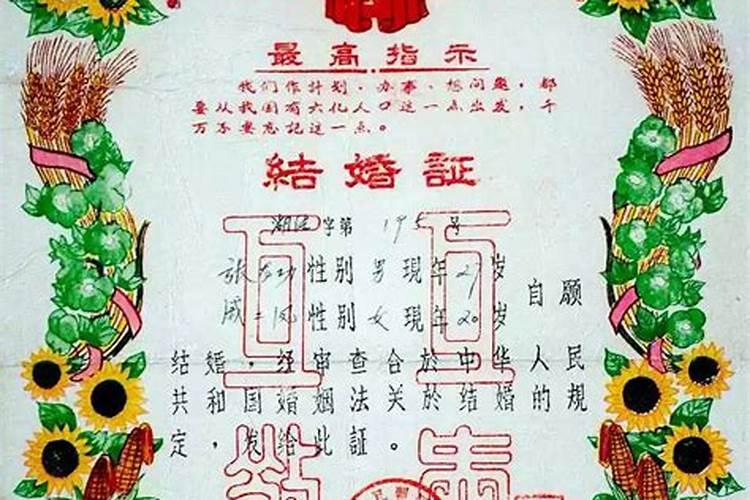 最高指示
我們作計划、办事、想问题，都
要从我国有六亿人口这一点出发，千
万不要忘記这一点。
結婚証
字第 195 号
張 性别 男 現年 27 岁
戚二凤 性别 女 現年 20 岁
自願
結婚，经審查合於中华人民
共和国婚姻法关於結婚的規
定，发给此証。
互 互
敬 爱